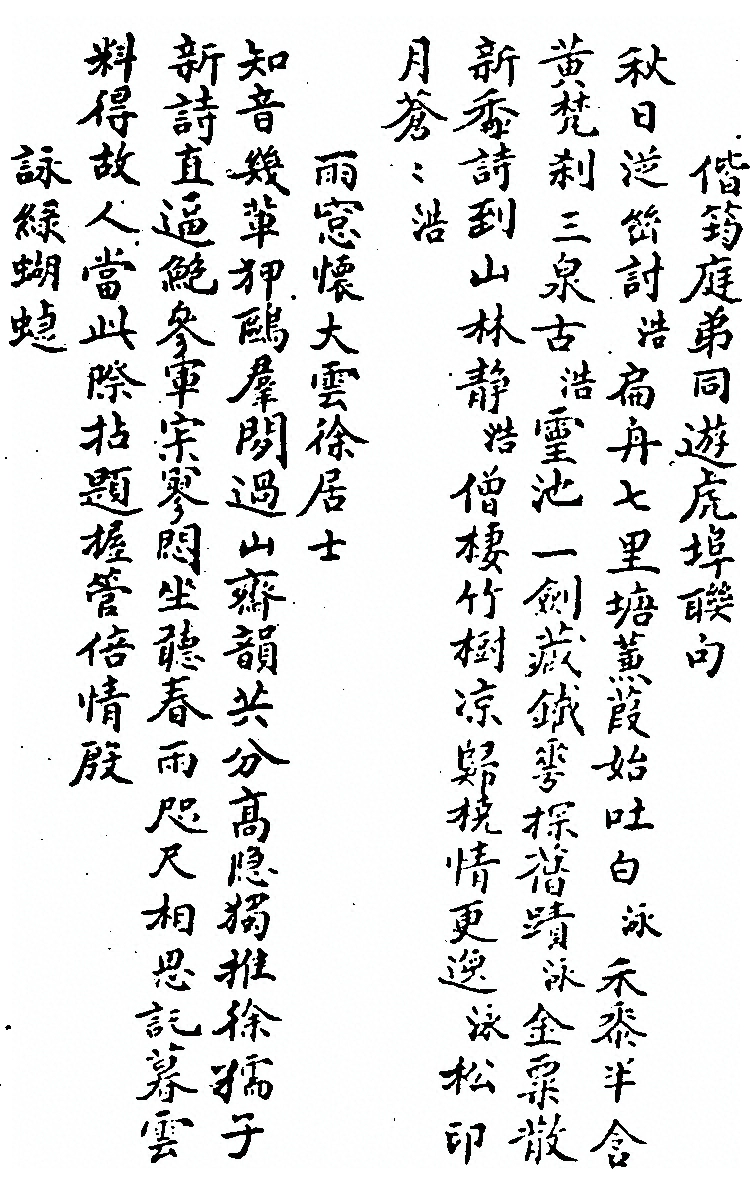 偕筠庭弟同遊虎埠聯句
秋日泛笛討浩扁舟七里塘蒹葭始吐白泳禾黍半含
黄梵刹三泉古浩靈池一劍藏鐵雩探舊蹟泳金粟散
新黍詩到山林静浩僧棲竹樹凉歸橈情更逸泳松印
月蒼〻浩
雨窓懷大雲徐居士
知音幾輩狎鷗羣閑過山齋韻共分高隐獨推徐孺子
新詩直逼鮑參軍宗寥悶坐聽春雨咫尺相思託暮雲
料得故人當此際拈題握管倍情殷
詠緑蝴蝶